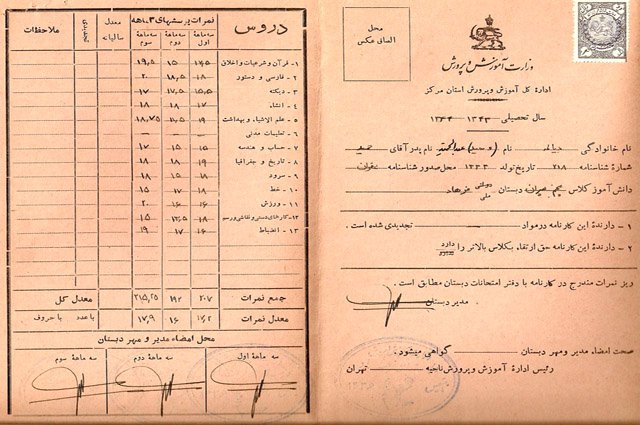 محل
الصاق عکس
وزارت آموزش و پرورش
اداره کل آموزش و پرورش استان مرکز
سال تحصیلی ۱۳۴۳ ۱۳۴۴
نام خانوادگی نام نام پدر آقای
شماره شناسنامه ۲۱۸ تاریخ تولد ۱۳۳۳ محل صدور شناسنامه
دانش آموز کلاس پنجم دبستان دولتی
ملی
۱ - دارنده این کارنامه در مواد تجدیدی شده است .
۲ - دارنده این کارنامه حق ارتقاء بکلاس بالاتر را دارد
ندارد
ریز نمرات مندرج در کارنامه با دفتر امتحانات دبستان مطابق است .
مدیر دبستان .
صحت امضاء مدیر و مهر دبستان گواهی میشود .
رئیس اداره آموزش و پرورش ناحیه تهران
دروس نمرات پرسشهای ۳ ماهه معدل سالیانه تجدیدی ملاحظات
سه ماهۀ اول سه ماهۀ دوم سه ماهۀ سوم
۱ - قرآن و شرعیات و اخلاق ۱۵ ۱۹,۵
۲ - فارسی و دستور ۱۸ ۱۸,۵ ۲۰
۳ - دیکته ۱۵,۵ ۱۷,۵ ۱۷
۴ - انشاء ۱۷ ۱۸ ۱۸
۵ - علم الاشیاء و بهداشت ۱۹ ۱۸,۷۵
۶ - تعلیمات مدنی
۷ - حساب و هندسه ۱۷ ۱۵ ۱۵
۸ - تاریخ و جغرافیا ۱۸ ۱۹ ۱۸
۹ - سرود ۱۸ ۱۵ ۱۸
۱۰ - خط ۱۸ ۱۷ ۱۵
۱۱ - ورزش ۱۶ ۱۶ ۲۰
۱۲ - کارهای دستی و نقاشی و رسم ۱۸ ۱۵
۱۳ - انضباط ۱۶ ۱۷ ۱۹
جمع نمرات ۲۰۷ ۱۹۲ ۲۱۵,۲۵ معدل کل
معدل نمرات ۱۶ ۱۷,۹ با عدد با حروف
محل امضاء مدیر و مهر دبستان
سه ماهۀ اول سه ماهۀ دوم سه ماهۀ سوم